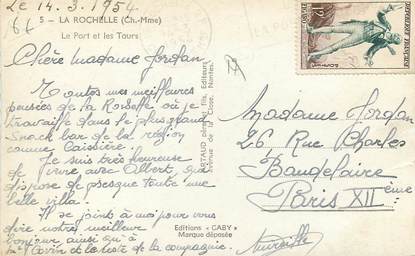 Le 14.3.1954
5 - LA ROCHELLE (Ch.-Mme)
Le Port et les Tours
Chère Madame Jordan
Toutes mes meilleures
pensées de la Rochelle où je
travaille dans le plus grand
Snack bar de la région
comme Caissière.
Je suis très heureuse
de vivre avec Albert, qui
dispose de presque toute une
belle villa.
Il se joint à moi pour vous
dire notre meilleur
bonjour ainsi qu'à
et le reste de la compagnie.
ARTAUD père et fils, Editeurs
avenue de la Nantes.
Editions "GABY"
Marque déposée
Madame Jordan
26 Rue Charles
Baudelaire
Paris XII ème